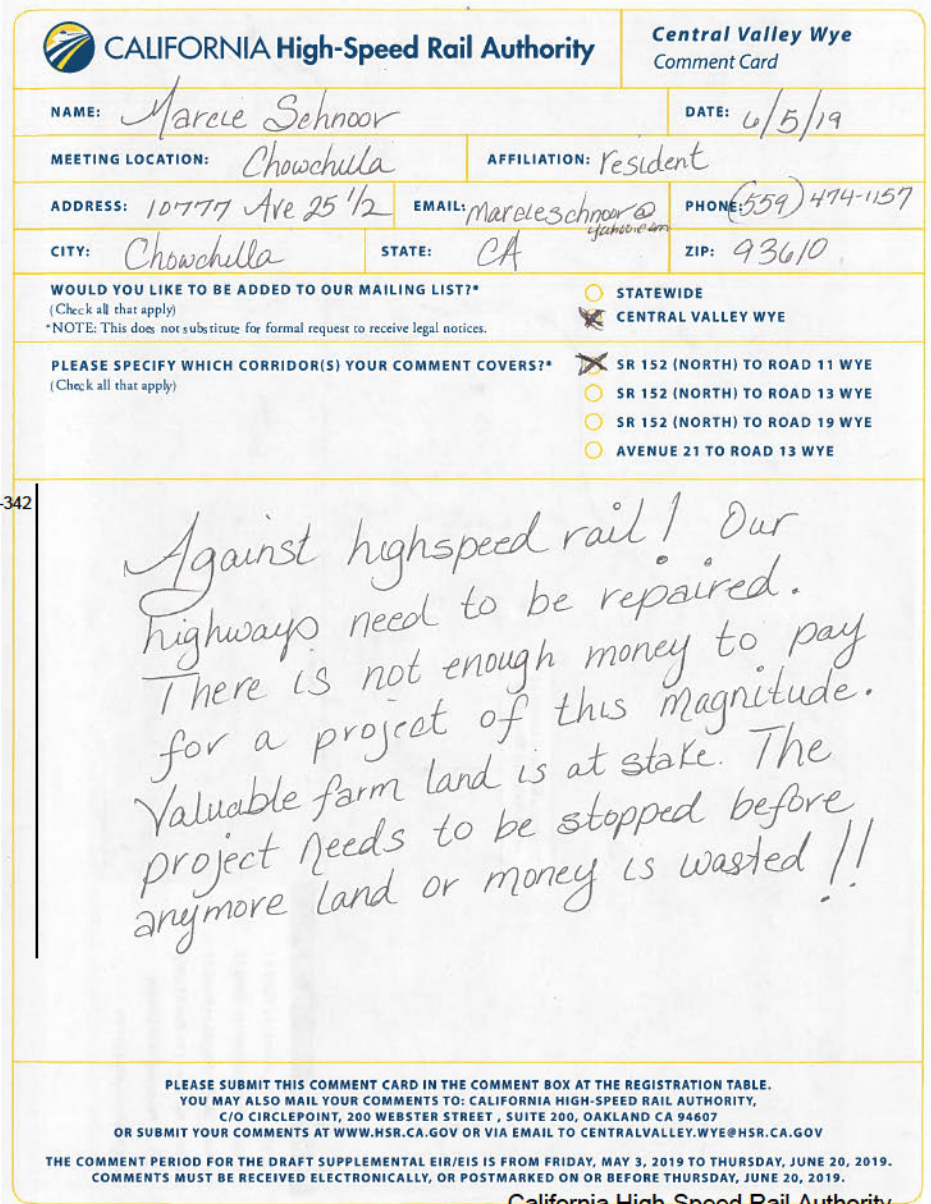 CALIFORNIA High-Speed Rail Authority
Central Valley Wye
Comment Card
NAME: Marcie Schnoor
DATE: 6/5/19
MEETING LOCATION: Chowchilla
AFFILIATION: resident
ADDRESS: 10777 Ave 25 1/2
EMAIL: marcieschnoor@
yahoo.com
PHONE: (559) 474-1157
CITY: Chowchilla
STATE: CA
ZIP: 93610
WOULD YOU LIKE TO BE ADDED TO OUR MAILING LIST?*
(Check all that apply)
*NOTE: This does not substitute for formal request to receive legal notices.
STATEWIDE
CENTRAL VALLEY WYE
PLEASE SPECIFY WHICH CORRIDOR(S) YOUR COMMENT COVERS?*
(Check all that apply)
SR 152 (NORTH) TO ROAD 11 WYE
SR 152 (NORTH) TO ROAD 13 WYE
SR 152 (NORTH) TO ROAD 19 WYE
AVENUE 21 TO ROAD 13 WYE
-342
Against highspeed rail! Our
highways need to be repaired.
There is not enough money to pay
for a project of this magnitude.
Valuable farm land is at stake. The
project needs to be stopped before
anymore land or money is wasted!!
PLEASE SUBMIT THIS COMMENT CARD IN THE COMMENT BOX AT THE REGISTRATION TABLE.
YOU MAY ALSO MAIL YOUR COMMENTS TO: CALIFORNIA HIGH-SPEED RAIL AUTHORITY,
C/O CIRCLEPOINT, 200 WEBSTER STREET , SUITE 200, OAKLAND CA 94607
OR SUBMIT YOUR COMMENTS AT WWW.HSR.CA.GOV OR VIA EMAIL TO CENTRALVALLEY.WYE@HSR.CA.GOV
THE COMMENT PERIOD FOR THE DRAFT SUPPLEMENTAL EIR/EIS IS FROM FRIDAY, MAY 3, 2019 TO THURSDAY, JUNE 20, 2019.
COMMENTS MUST BE RECEIVED ELECTRONICALLY, OR POSTMARKED ON OR BEFORE THURSDAY, JUNE 20, 2019.
California High-Speed Rail Authority